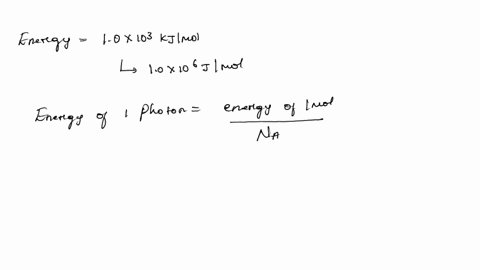 Energy = 1.0 x 10³ KJ/mol
↳ 1.0 x 10⁶ J/mol
Energy of 1 Photon = energy of 1mol
N_A